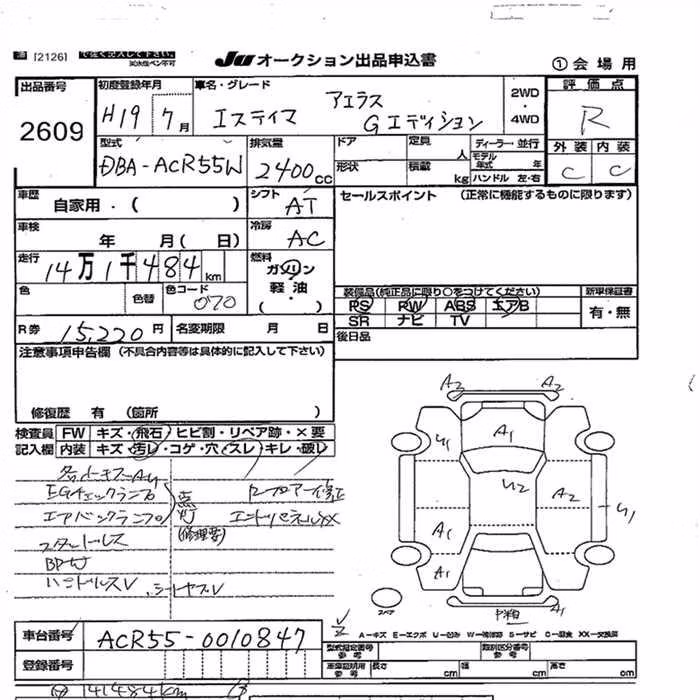 [2126] で強く記入して下さい。
JU オークション出品申込書
① 会場用
出品番号
2609
初度登録年月
H19 7月
車名・グレード
エスティマ アエラス
Gエディション
2WD・4WD
評価点
R
型式
DBA-ACR55W
排気量
2400cc
ドア
定員 人
ディーラー・並行
形状
積載 kg
モデル年式 年
ハンドル 左・右
外装 内装
C C
車歴
自家用・( )
シフト
AT
セールスポイント (正常に機能するものに限ります)
車検
年 月( 日)
冷房
AC
走行
14万1千484km
燃料
ガソリン
軽油
( )
色
色替
色コード
070
装備品(純正品に限り○をつけてください)
PS PW ABS エアB
SR ナビ TV
新車保証書
有・無
R券 15,220円
名変期限 月 日
後日品
注意事項申告欄 (不具合内容等は具体的に記入して下さい)
修復歴 有 (箇所 )
検査員 FW キズ・飛石 ヒビ割・リペア跡・×要
記入欄 内装 キズ・汚レ・コゲ・穴・スレ・キレ・破レ
EGチェックランプ
エアバックランプ
点灯
(修理要)
スタッドレス
ハンドルスレ
A2 A2
A1
U1
U2
A2
U1
A1
A1
A1
スペア
A-キズ E-エクボ U-凹み W-補修跡 S-サビ C-腐食 XX-交換済
車台番号
ACR55-0010847
型式指定番号 参考
類別区分番号 参考
登録番号
車庫証明用 参考
長さ cm
幅 cm
高さ cm
141484km